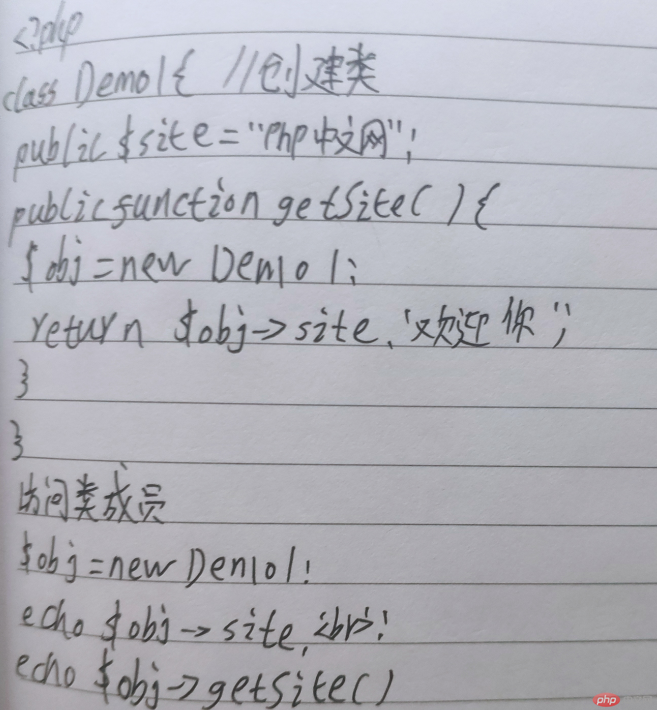 <?php
class Demo1{ //创建类
public $site="php中文网";
public function getSite( ){
$obj=new Demo1;
return $obj->site.'欢迎你';
}
}
访问类成员
$obj=new Demo1;
echo $obj->site.'<br>';
echo $obj->getSite()
php